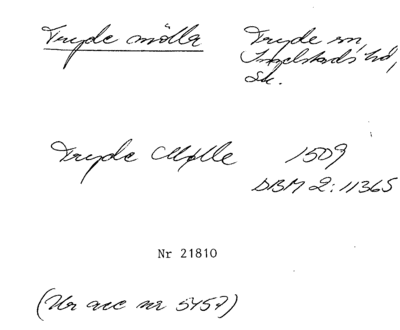 Tryde mölla
Tryde sn,
Ingelstads hd,
Sk.
Tryde Mølle 1509
DBM 2:11365
Nr 21810
(Ur acc nr 5457)